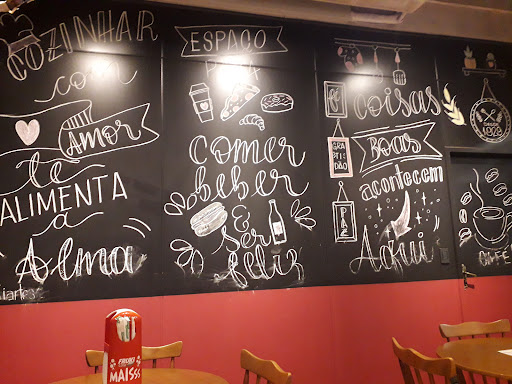 COZINHAR
com
AMOR
te
ALIMENTA
a
Alma
ESPAÇO
comer
beber
&
ser
feliz
fé
GRA
TI
DÃO
PAZ
coisas
BOAS
acontecem
Aqui
1928
CAFÉ
MAISSS